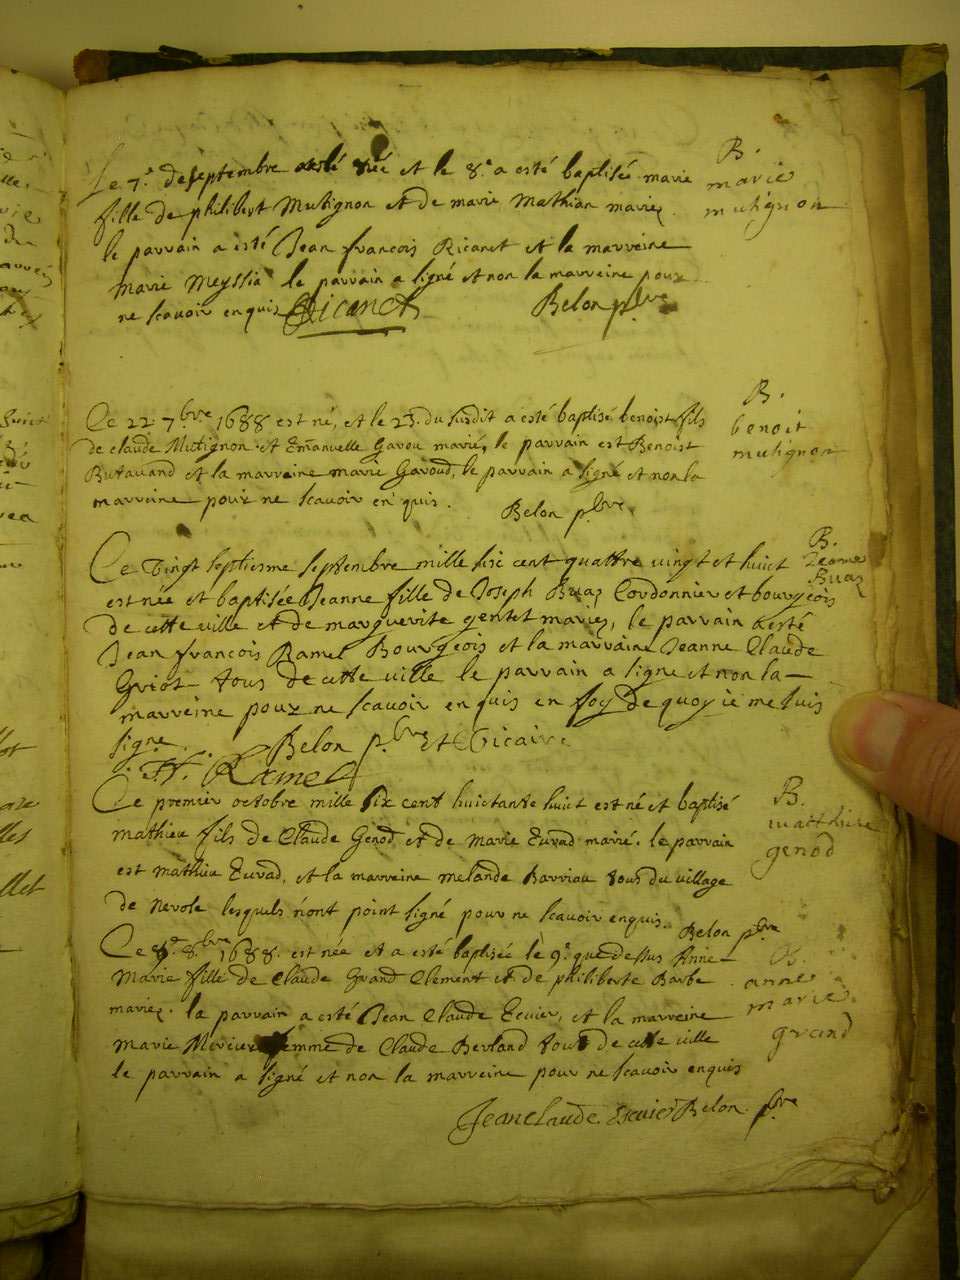 Le 7.e de septembre a esté née et le 8.e a esté baptisée marie
fille de philibert Mutignon et de marie Mathian mariez.
le parrain a esté Jean françois Ricanet et la marreine
Marie Meyssia le parrain a signé et non la marreine pour
ne scavoir enquis Ricanet Belon pbre
B.
marie
mutignon
Ce 22 7bre 1688 est né, et le 23. du susdit a esté baptisé benoist fils
de claude Mutignon et Emanuelle Gavou mariés, le parrain est Benoist
Butavand et la marreine marie Gavoud, le parrain a signé et non la
marreine pour ne scavoir en quis.
Belon pbre
B.
benoit
mutignon
Ce vingt septiesme septembre mille six cent quattre vingt et huict
est née et baptisée Jeanne fille de Joseph Buaz Cordonnier et bourgeois
de cette ville et de marguerite gentet mariez, le parrain a esté
Jean françois Ramel Bourgeois et la marraine Jeanne Claude
Guiot tous de cette ville le parrain a signe et non la
marreine pour ne scavoir enquis en foy de quoy ie me suis
signe. Belon pbre et Vicaire
Ramel
B.
Jeanne
Buaz
Ce premier octobre mille six cent huictante huict est né et baptisé
mathieu fils de Claude Genod et de Marie Euvad marié. le parrain
est mathieu Euvad, et la marreine melande Barriau tous du village
de Nevole lesquels n'ont point signé pour ne scavoir enquis. Belon pbre
B.
matthieu
genod
Ce 8.e 8bre 1688. est née et a esté baptisée le 9.e que dessus Anne
Marie fille de Claude Grand Clement et de philiberte Barbe
mariez. la parrain a esté Jean Claude Ecuier, et la marreine
Marie Mercier femme de Claude Berland tous de cette ville
le parrain a signé et non la marreine pour ne scavoir enquis
Jean claude Escuier Belon pbre
B.
anne
marie
grand